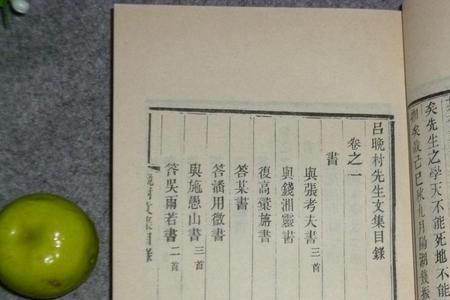 矣先生之學天不能死地不能
矣故己巳秋九月陽湖錢振
呂晚村先生文集目錄
卷之一
書
與張考夫書三首
與錢湘靈書
復高彙旃書
答某書
答潘用微書
與施愚山書三首
答吳雨若書二首
晚村文集目錄